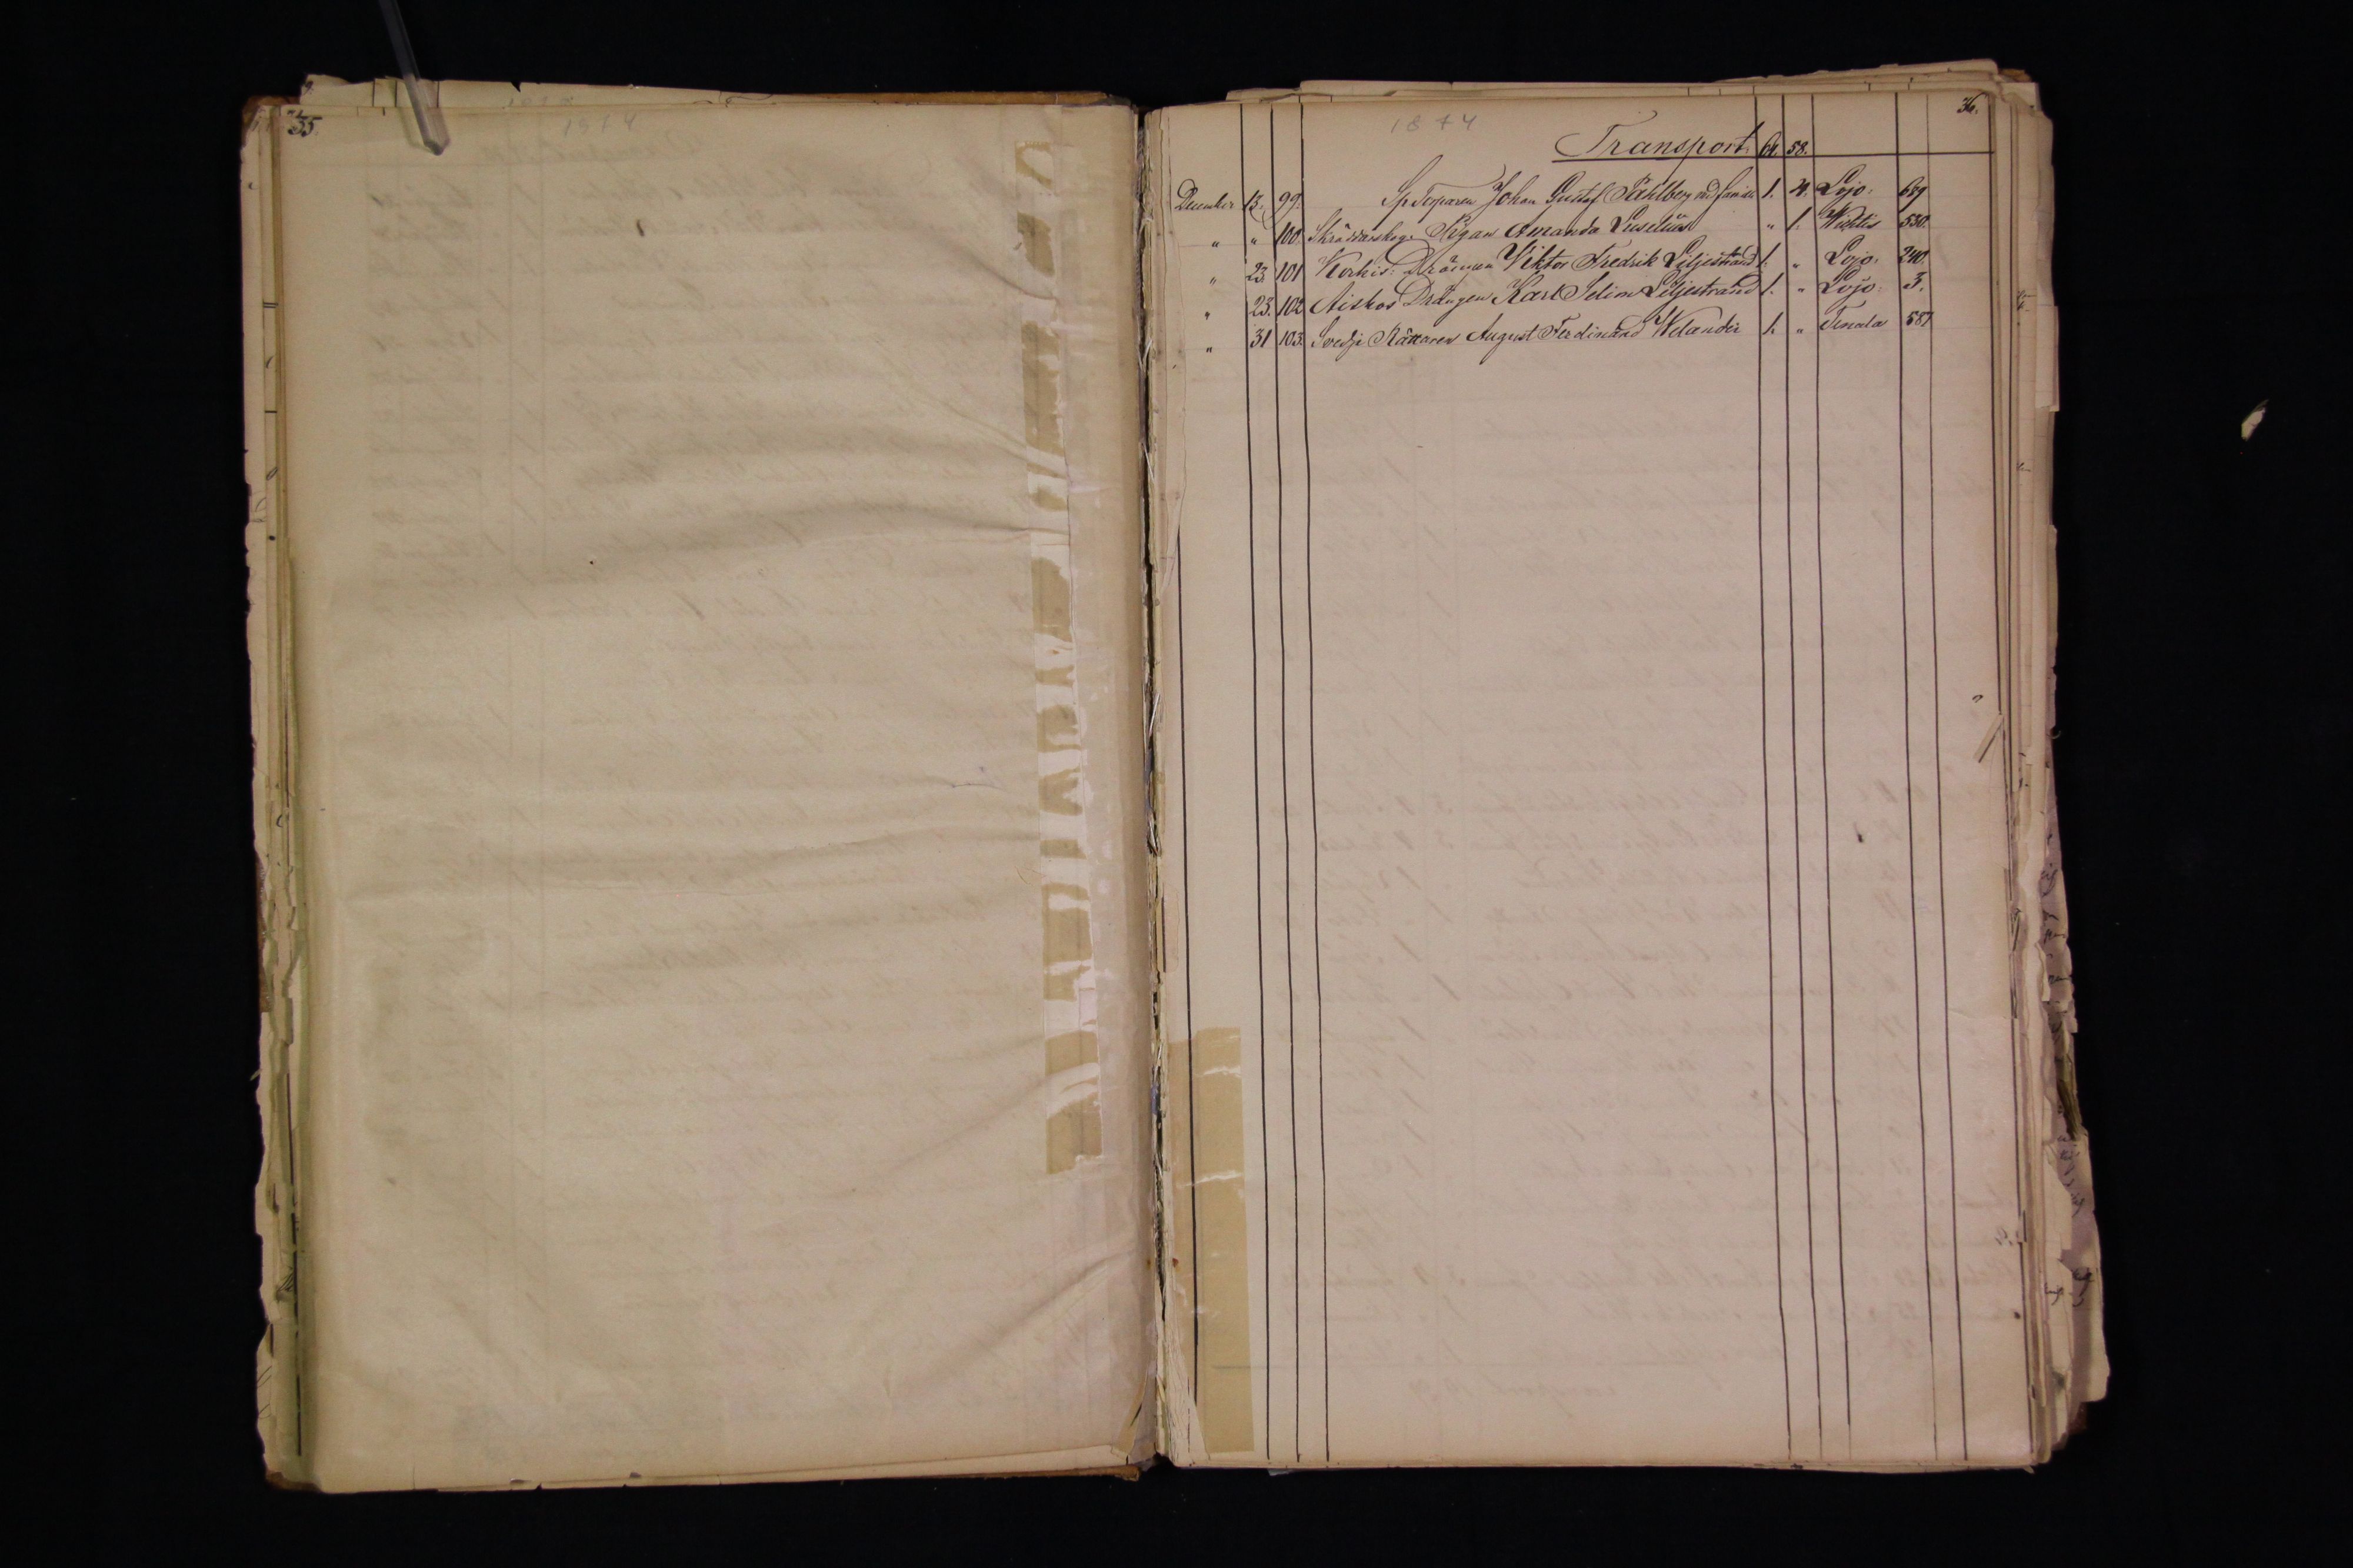 35.
1874
36.
1874
Transport 64. 58.
December 15. 99. Sp. Torparen Johan Gustaf Påhlberg med familie 1. 4. Lojo. 689
" " 100. Skräddarskog. Pigan Amanda Luselius " 1. Wichtis 530.
" 23. 101 Korkis: Drängen Viktor Fredrik Liljestrand 1. " Lojo. 240.
" 23. 102 Aiskos Drängen Karl Selim Liljestrand 1. " Lojo. 3.
" 31 103. Svedja Rättaren August Ferdinand Welander 1. " Tenala 587